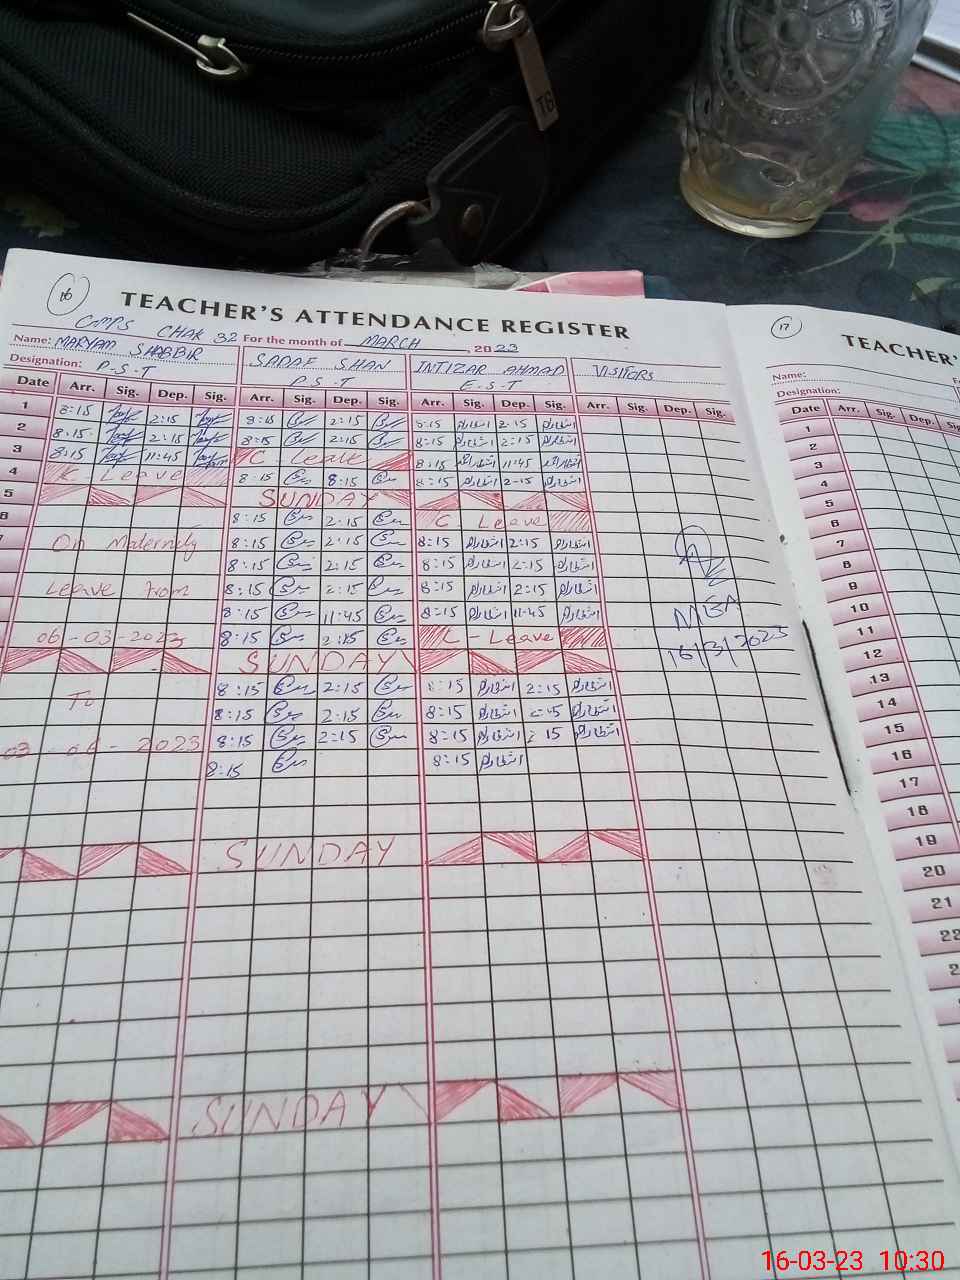 16
TEACHER'S ATTENDANCE REGISTER
GMPS CHAK 32 For the month of MARCH, 2023
Name: MARYAM SHABBIR SADAF SHAN INTIZAR AHMAD VISITORS
Designation: P.S.T P.S.T E.S.T
Date Arr. Sig. Dep. Sig. Arr. Sig. Dep. Sig. Arr. Sig. Dep. Sig. Arr. Sig. Dep. Sig.
1 8:15 2:15 8:15 2:15 8:15 انتظار 2-15 انتظار
2 8:15 2:15 8:15 2:15 8:15 انتظار 2:15 انتظار
3 8:15 11:45 C - Leave 8:15 انتظار 11:45 انتظار
4 C - Leave 8:15 8:15 8:15 انتظار 2-15 انتظار
5 SUNDAY
6 8:15 2:15 C Leave
7 On Maternity 8:15 2:15 8:15 انتظار 2:15 انتظار
8:15 2:15 8:15 انتظار 2:15 انتظار
Leave from 8:15 2:15 8:15 انتظار 2:15 انتظار
8:15 11:45 8:15 انتظار 11-45 انتظار
06-03-2023 8:15 2:15 C - Leave
SUNDAY
To 8:15 2:15 8:15 انتظار 2:15 انتظار
8:15 2:15 8:15 انتظار 2:15 انتظار
03-06-2023 8:15 2:15 8:15 انتظار 2:15 انتظار
8:15 8:15 انتظار
SUNDAY
SUNDAY
MEA
16/3/2023
17
TEACHER'
Name:
Designation:
Date Arr. Sig. Dep. Sig
1
2
3
4
5
6
7
8
9
10
11
12
13
14
15
16
17
18
19
20
21
22
TB
16-03-23 10:30